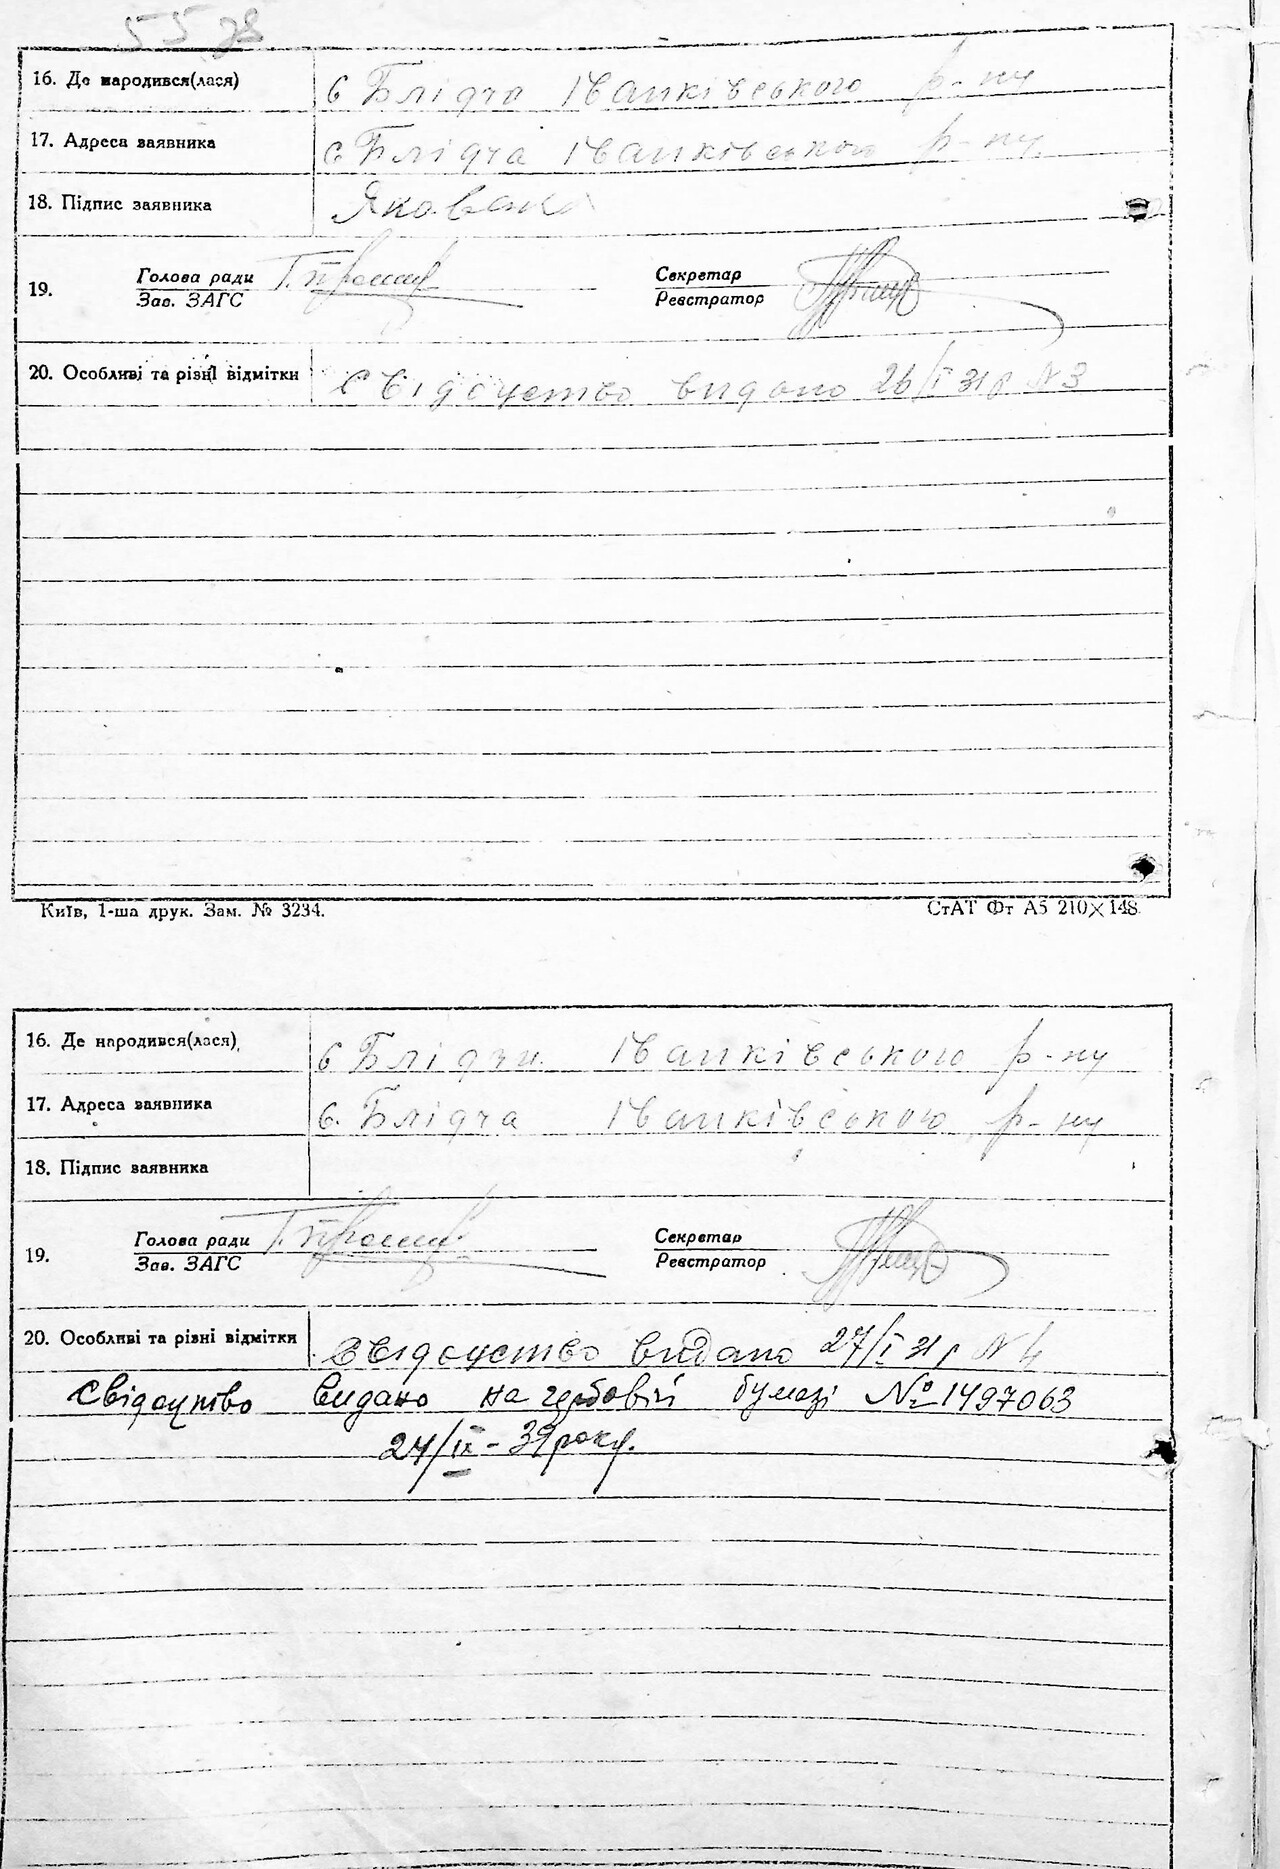 55 зв
16. Де народився(лася) с Блідча Іванківського р-ну
17. Адреса заявника с Блідча Іванківського р-ну
18. Підпис заявника
19. Голова ради Секретар
Зав. ЗАГС Реєстратор
20. Особливі та різні відмітки Свідоцтво видано 26/I 31 р N 3
Київ, 1-ша друк. Зам. № 3234. СтАТ Фт А5 210×148.
16. Де народився(лася) с Блідчи Іванківського р-ну
17. Адреса заявника с. Блідча Іванківського р-ну
18. Підпис заявника
19. Голова ради Секретар
Зав. ЗАГС Реєстратор
20. Особливі та різні відмітки Свідоцтво видано 27/I 31 р N 4
Свідоцтво видано на гербовій бумазі № 1497063
24/IX - 39 року.